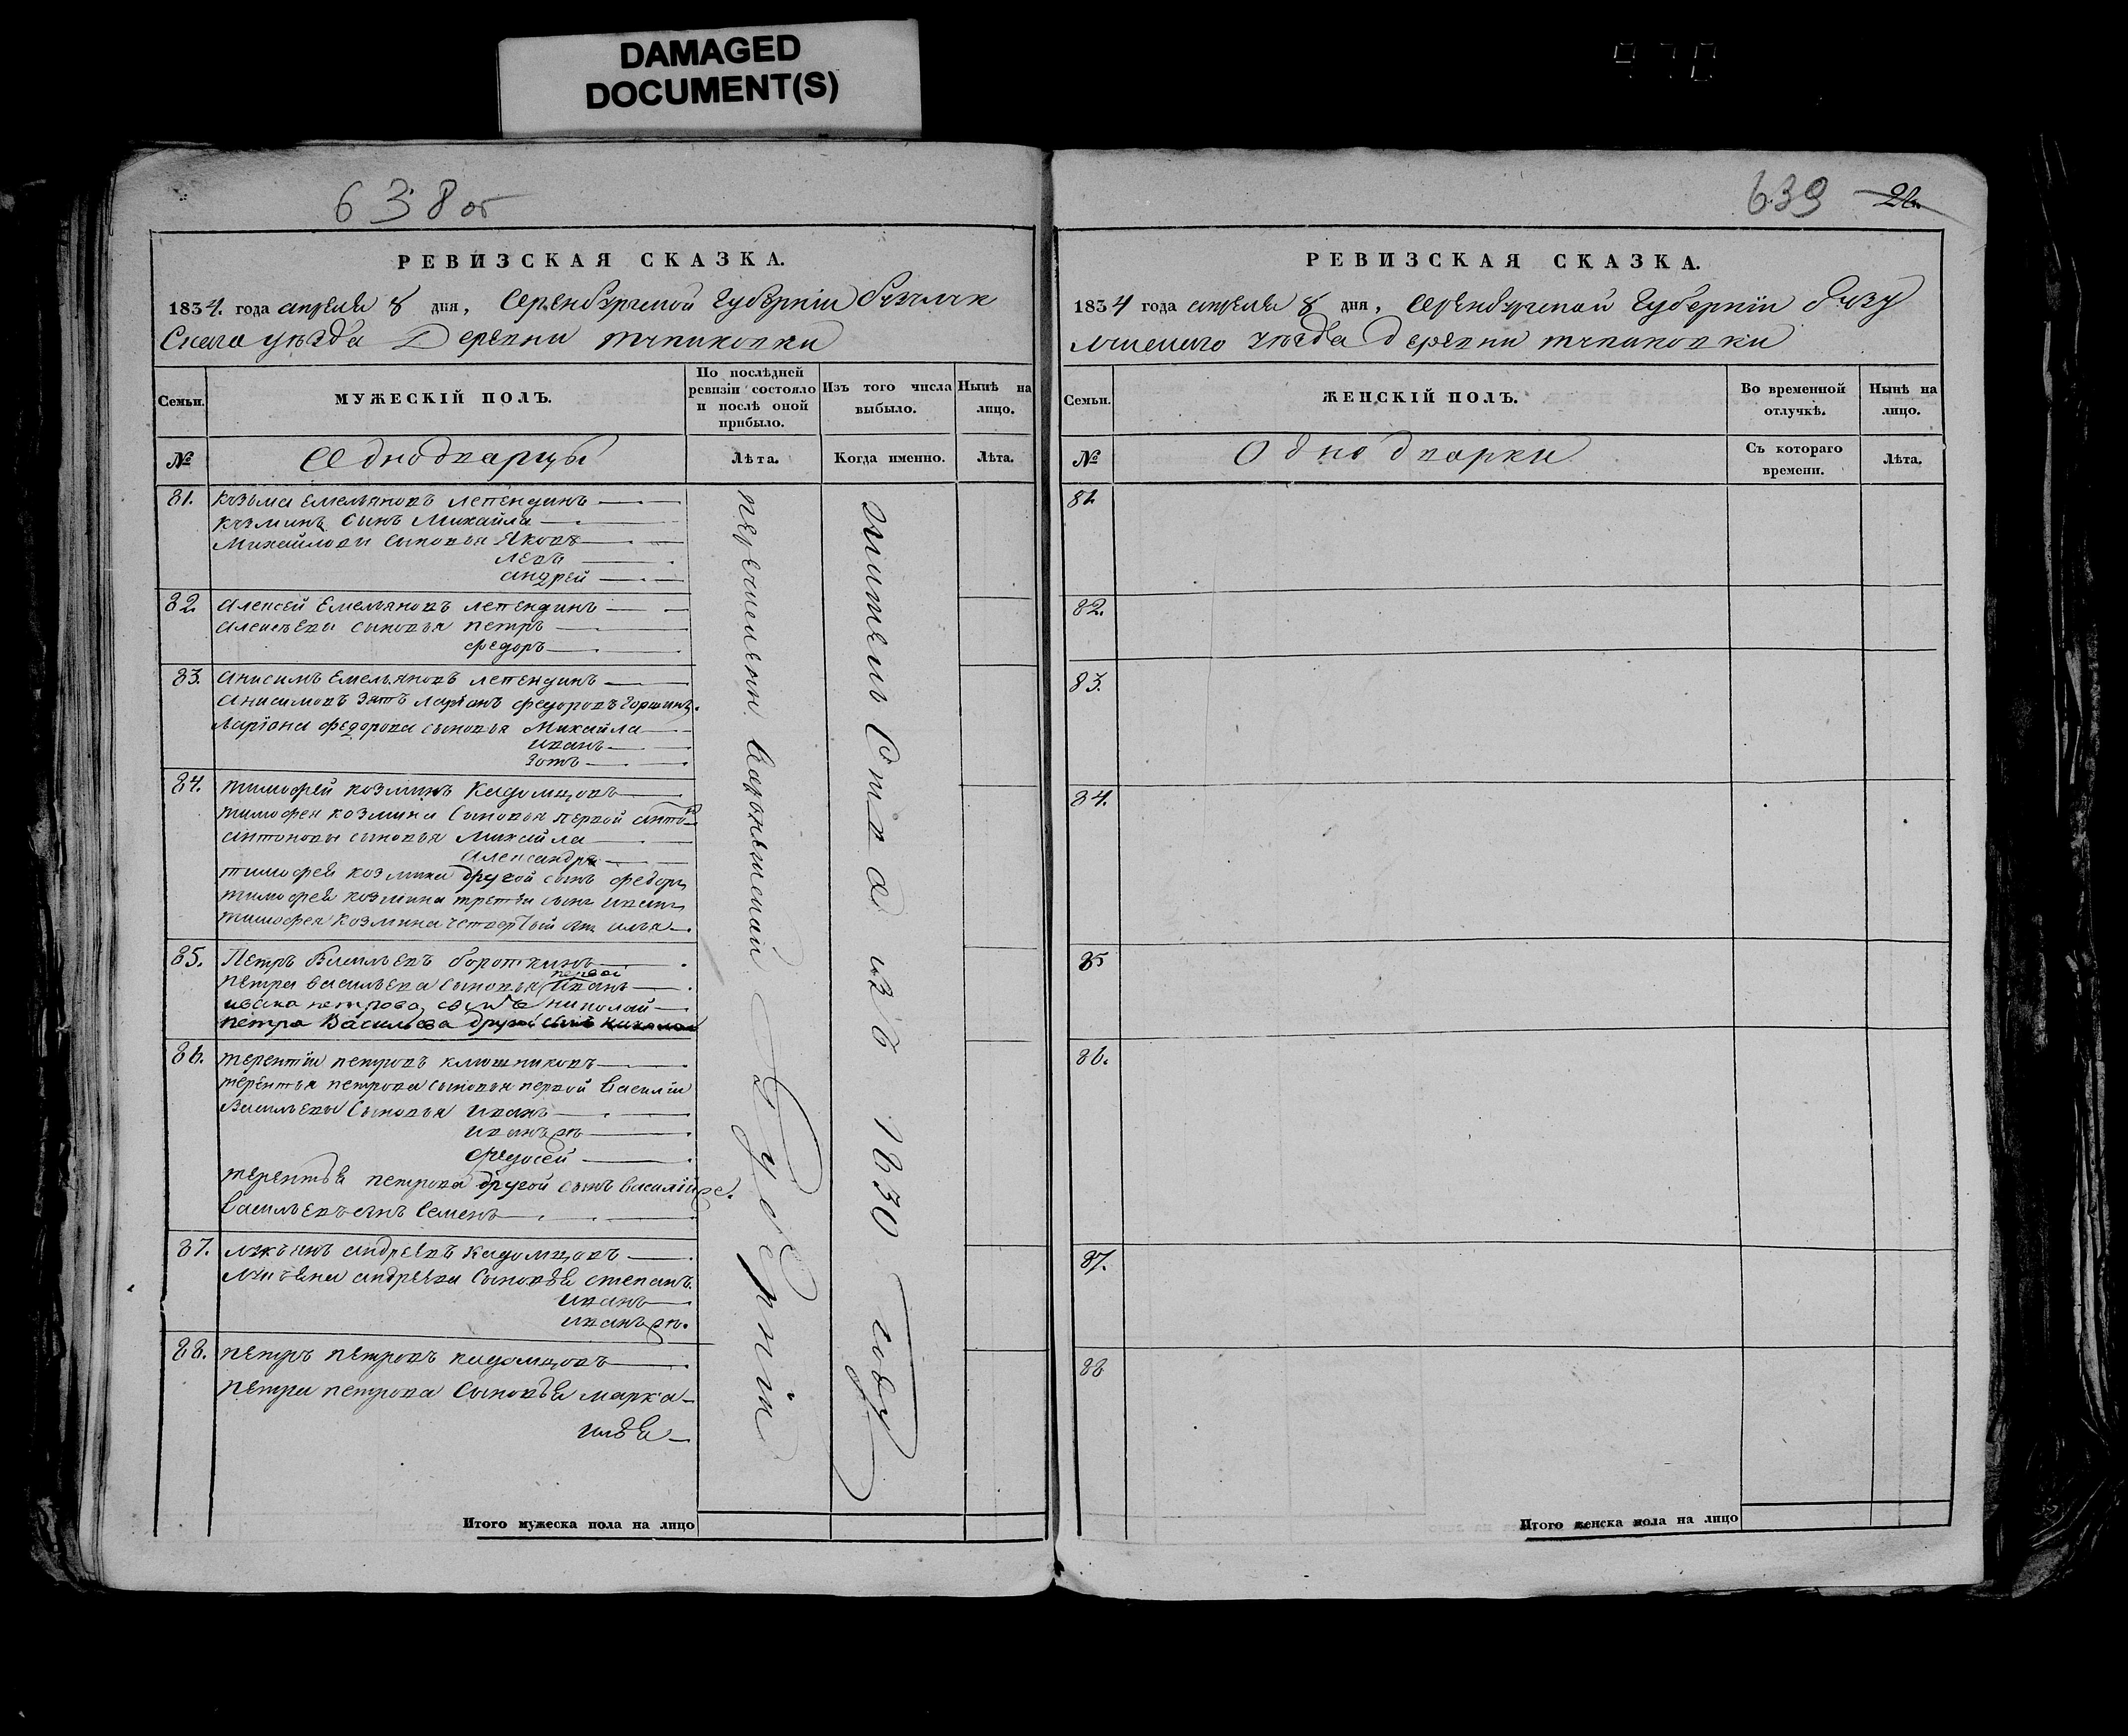 DAMAGED
DOCUMENT(S)
638 об
РЕВИЗСКАЯ СКАЗКА.
1834. года апреля 8 дня, Оренбургской Губернiи Бузулук
Скаго уезда Деревни
Семьи.
МУЖЕСКIЙ ПОЛЪ.
По послѣдней ревизiи состояло и послѣ оной прибыло.
Изъ того числа выбыло.
Нынѣ на лицо.
№
Однодварцы
Лѣта.
Когда именно.
Лѣта.
81. Кузьма Емельяновъ Лепендинъ
Кузминъ Сынъ Михайла
Михайловы Сыновья Яковъ
Левъ
Андрей
82. Алексей Емельяновъ Лепендинъ
Алексеевы сыновья Петръ
Федоръ
83. Анисимъ Емельяновъ Лепендинъ
Анисимовъ Зять Ларiанъ Федоровъ Горшинъ
Ларiана Федорова сыновья Михайла
Иванъ
Зотъ
84. Тимофей Козминъ Кадомцовъ
Тимофея Козмина Сыновья первой Анто
Антоновы сыновья Михайла
Александра
Тимофея Козмина другой сынъ Федоръ
Тимофея Козмина третiй сынъ Иванъ
Тимофея Козмина четвертый сынъ Илья
85. Петръ Васильевъ
первой
Петра Васильева Сыновья Иванъ
Ивана петрова сынъ николай
петра Васильева другой сынъ николай
86. Терентiй Петровъ Клюшниковъ
Терентья Петрова сыновья первой Василiй
Васильевы Сыновья Иванъ
Иванъ же
Федосей
Терентья Петрова другой сынъ Василiй же.
Васильевъ сынъ Семенъ
87. Лукьянъ Андреевъ Кадомцовъ
Лукьяна Андреева Сыновья Степанъ.
Иванъ
Иванъ же.
88. Петръ Петровъ Кадомцовъ
Петра петрова Сыновья марка
Илья
Губернiи
1830 Году
Итого мужеска пола на лицо
639 26.
РЕВИЗСКАЯ СКАЗКА.
1834 года апреля 8 дня, Оренбургской Губернiи Бузу
лукскаго уезда деревни
Семьи.
ЖЕНСКIЙ ПОЛЪ.
Во временной отлучкѣ.
Нынѣ на лицо.
№
Однодворки
Съ котораго времени.
Лѣта.
81.
82.
83.
84.
85
86.
87.
88
Итого женска пола на лицо